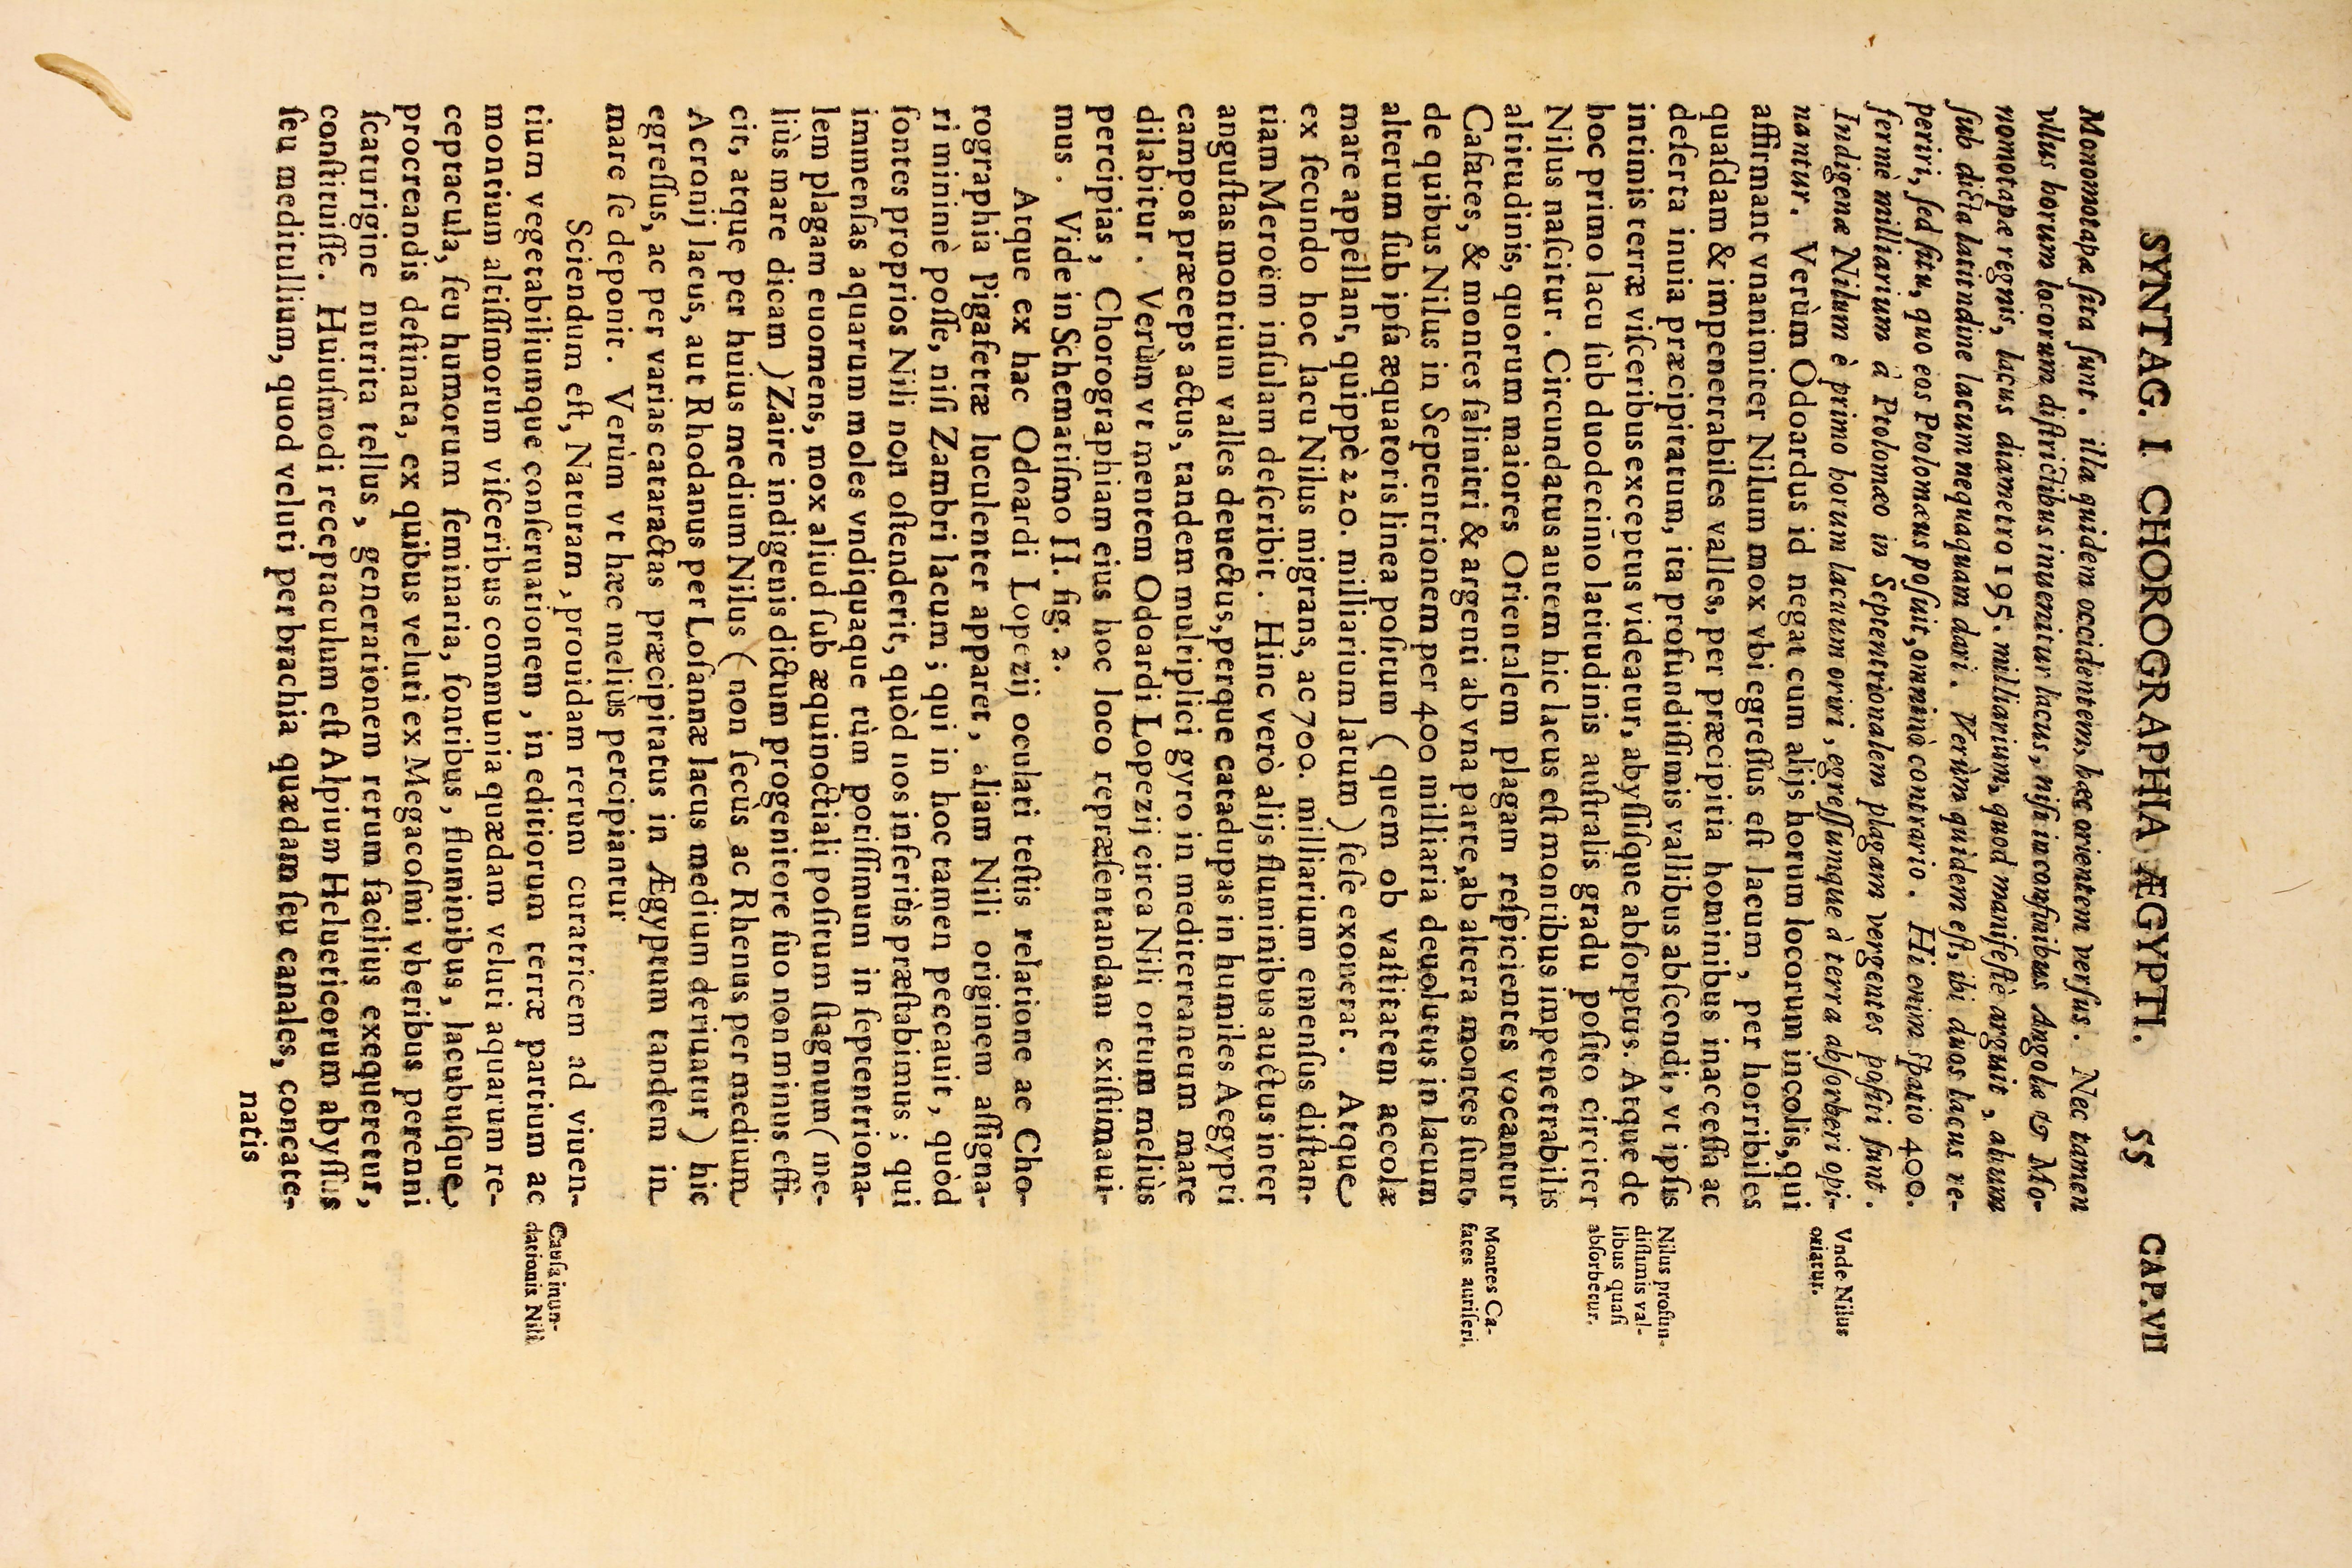 SYNTAG. I CHOROGRAPHIA ÆGYPTI. 55 CAP. VII
Monomotapæ ſita ſunt. illa quidem occidentem, hæc orientem verſus. Nec tamen
vllus horum locorum diſtrictibus inuenitur lacus, niſi in confinibus Angolæ & Mo-
nomotapæ regnis, lacus diametro 195. milliarium, quod manifeſtè arguit, alium
ſub dicta latitudine lacum nequaquam dari. Verùm quidem eſt, ibi duos lacus re-
periri, ſed ſitu, quo eos Ptolomæus poſuit, omninò contrario. Hi enim ſpatio 400.
fermè milliarium à Ptolomæo in Septentrionalem plagam vergentes poſiti ſunt.
Indigenæ Nilum è primo horum lacuum oriri, egreſſumque à terra abſorberi opi-
nantur. Verùm Odoardus id negat cum alijs horum locorum incolis, qui
affirmant vnanimiter Nilum mox vbi egreſſus eſt lacum, per horribiles
quaſdam & impenetrabiles valles, per præcipitia hominibus inacceſſa ac
deſerta inuia præcipitatum, ita profundiſſimis vallibus abſcondi, vt ipſis
intimis terræ viſceribus exceptus videatur, abyſſiſque abſorptus. Atque de
hoc primo lacu ſub duodecimo latitudinis auſtralis gradu poſito circiter
Nilus naſcitur. Circundatus autem hic lacus eſt montibus impenetrabilis
altitudinis, quorum maiores Orientalem plagam reſpicientes vocantur
Cafates, & montes ſalinitri & argenti ab vna parte, ab altera montes ſunt,
de quibus Nilus in Septentrionem per 400 milliaria deuolutus in lacum
alterum ſub ipſa æquatoris linea poſitum ( quem ob vaſtitatem accolæ
mare appellant, quippè 220. milliarium latum ) ſeſe exonerat. Atque
ex ſecundo hoc lacu Nilus migrans, ac 700. milliarium emenſus diſtan-
tiam Meroëm inſulam deſcribit. Hinc verò alijs fluminibus auctus inter
anguſtas montium valles deuectus, perque catadupas in humiles Aegypti
campos præceps actus, tandem multiplici gyro in mediterraneum mare
dilabitur. Verùm vt mentem Odoardi Lopezij circa Nili ortum meliùs
percipias, Chorographiam eius hoc loco repræſentandam exiſtimaui-
mus. Vide in Schematiſmo II. fig. 2.
Atque ex hac Odoardi Lopezij oculati teſtis relatione ac Cho-
rographia Pigafettæ luculenter apparet, aliam Nili originem aſſigna-
ri minimè poſſe, niſi Zambri lacum; qui in hoc tamen peccauit, quòd
fontes proprios Nili non oſtenderit, quòd nos inferiùs præſtabimus; qui
immenſas aquarum moles vndiquaque tùm potiſſimum in ſeptentriona-
lem plagam euomens, mox aliud ſub æquinoctiali poſitum ſtagnum ( me-
liùs mare dicam ) Zaire indigenis dictum progenitore ſuo non minus effi-
cit, atque per huius medium Nilus ( non ſecùs ac Rhenus per medium
Acronij lacus, aut Rhodanus per Loſannæ lacus medium deriuatur ) hic
egreſſus, ac per varias cataractas præcipitatus in Ægyptum tandem in
mare ſe deponit. Verùm vt hæc meliùs percipiantur
Sciendum eſt, Naturam, prouidam rerum curatricem ad viuen-
tium vegetabiliumque conſeruationem, in editiorum terræ partium ac
montium altiſſimorum viſceribus communia quædam veluti aquarum re-
ceptacula, ſeu humorum ſeminaria, fontibus, fluminibus, lacubuſque
procreandis deſtinata, ex quibus veluti ex Megacoſmi vberibus perenni
ſcaturigine nutrita tellus, generationem rerum facilius exequeretur,
conſtituiſſe. Huiuſmodi receptaculum eſt Alpium Helueticorum abyſſus
ſeu meditullium, quod veluti per brachia quædam ſeu canales, concate-
natis
Vnde Nilus
oriatur.
Nilus profun-
diſſimis val-
libus quaſi
abſorbetur.
Montes Ca-
fates auriferi.
Cauſa inun-
dationis Nili